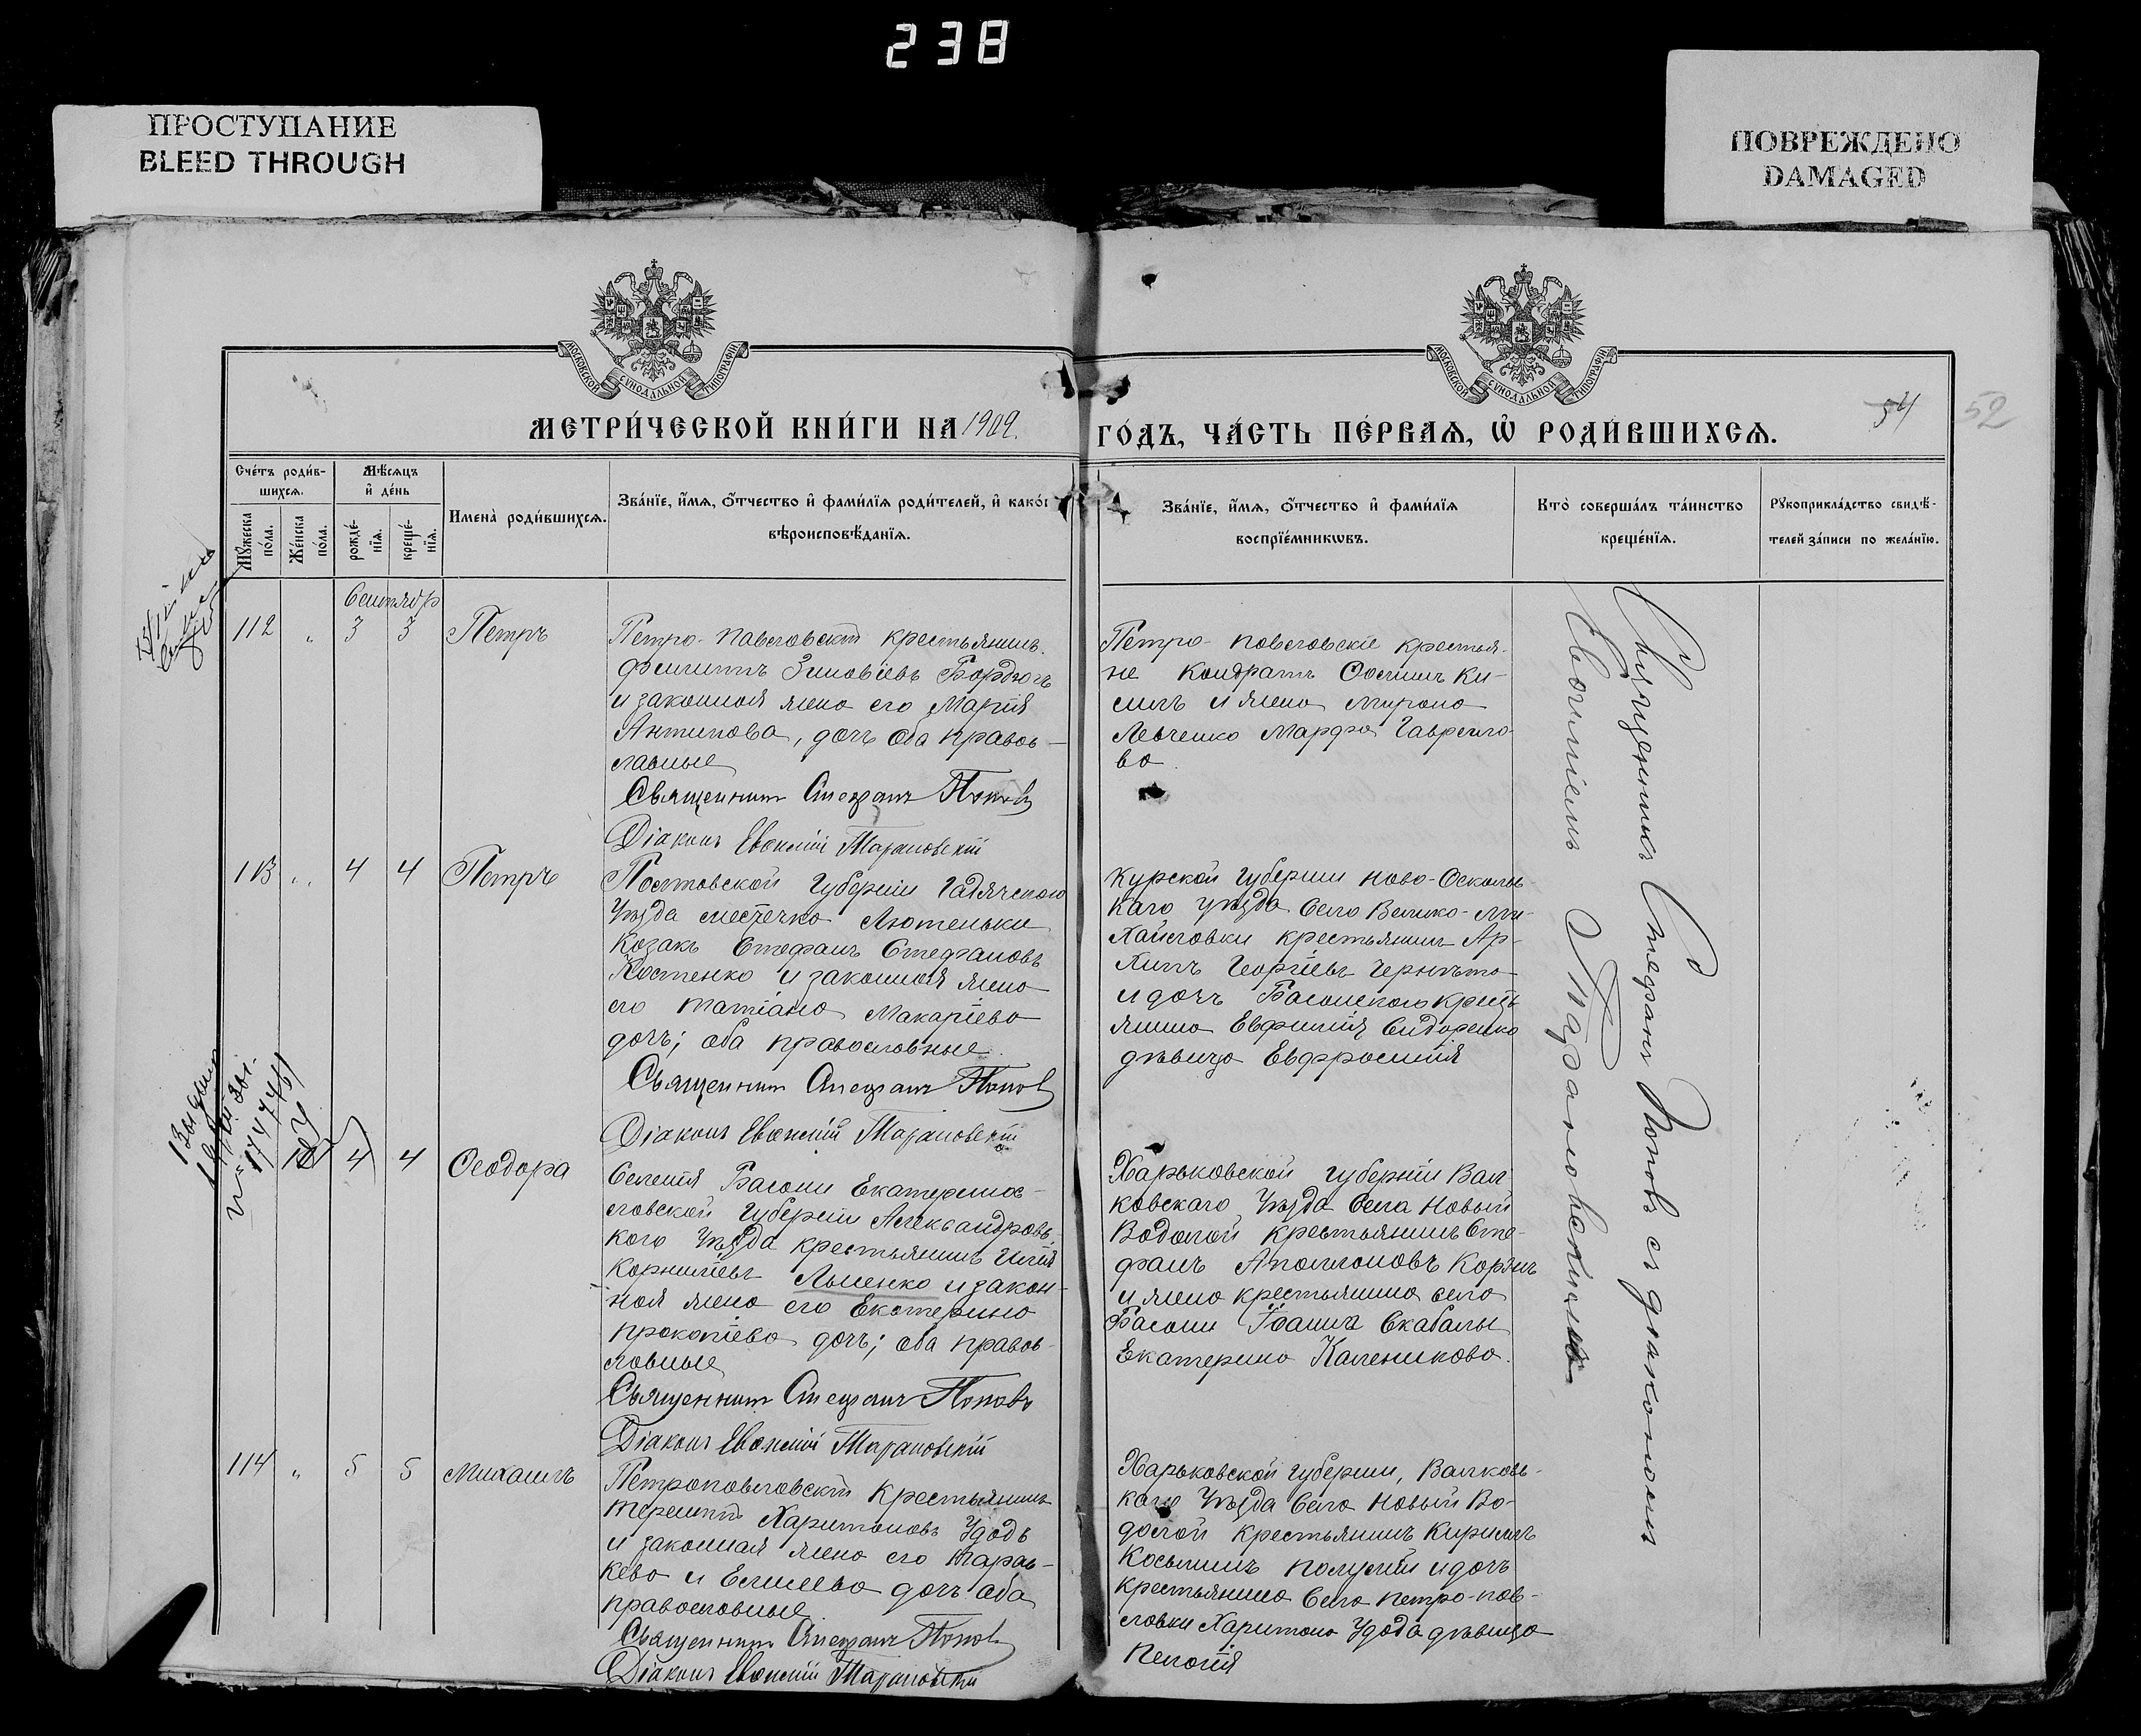 238
ПРОСТУПАНИЕ
BLEED THROUGH
ПОВРЕЖДЕНО
DAMAGED
МОСКОВСКОЙ СѴНОДАЛЬНОЙ ТИПОГРАФІИ
МОСКОВСКОЙ СѴНОДАЛЬНОЙ ТИПОГРАФІИ
МЕТРИ́ЧЕСКОЙ КНИ́ГИ НА 1909.
ГО́ДЪ, ЧА́СТЬ ПЕ́РВАѦ, Ѡ҆ РОДИ́ВШИХСѦ.
54
52
Сче́тъ роди́в-
шихсѧ.
Мꙋ́жеска
по́ла.
Же́нска
по́ла.
Мѣ́сѧцъ
и҆ де́нь
рожде́-
нїѧ.
креще́-
нїѧ.
Имена̀ роди́вшихсѧ.
Зва́нїе, и҆́мѧ, ѻ҆́тчество и҆ фами́лїѧ роди́телей, и҆ како́г
вѣроисповѣ́данїѧ.
Зва́нїе, и҆́мѧ, ѻ҆́тчество и҆ фами́лїѧ
воспрїе́мникѡвъ.
Кто̀ соверша́лъ та́инство
креще́нїѧ.
Рꙋкоприкла́дство свидѣ́-
телей за́писи по жела́нїю.
Сентябр
112 „ 3 3 Петръ
Петро-Павловскій крестьянинъ
Филиппъ Зиновіевъ Бордюгъ
и законная жена его Марія
Антипова, дочь оба правос-
лавные
Священникъ Стефанъ Поповъ
Діаконъ Евгеній Тарановскій
Петро-Повловскіе крестья-
не Кондратъ Осипинъ Ки-
силь и жена Мирона
Левченко Марфа Гаврило-
ва
113 „ 4 4 Петръ
Полтовской губерніи Гадячского
Уѣзда местечка Лютеньки
Козакъ Стефанъ Стефановъ
Костенко и законная жена
его Татіана Макаріева
дочь; оба православные.
Священникъ Стефанъ Поповъ
Діаконъ Евгеній Тарановскій
Курской губерніи Ново-Осколь-
каго уѣзда села Велико-Ми-
хайловки крестьянинъ Ар-
хипъ Георгіевъ
и дочь Басонского кресть
янина Евфимія Сидоренко
дѣвица Евфросинія
4 4 Ѳеодора
Селенія Басони Екатеринос-
лавской губерніи Александровс-
кого Уѣзда крестьянинъ Илія
Корниліевъ Льшенко и закон-
ная жена его Екатерина
Прокопіева дочь; оба правос-
ловные
Священникъ Стефанъ Поповъ
Діаконъ Евгеній Тарановскій
Харьковской губерніи Вал
ковскаго Уѣзда села Новый
Водолой крестьянинъ Сте-
фанъ Аполлоновъ
и жена крестьянина села
Басони Іоанна Скабалы
Екатерина Каленикова.
114 „ 5 5 Михаилъ
Петроповловскій крестьянинъ
Терентій Харитоновъ Удодъ
и законная жена его Парас-
кева и Елисеева дочь оба
православные.
Священникъ Стефанъ Поповъ
Діаконъ Евгеній Тарановскій
Харьковской губерніи, Валковс-
каго Уѣзда села Новый Во-
долой крестьянинъ Кириллъ
Косьминъ и дочь
крестьянина села Петро-Пав-
ловки Харитона Удода дѣвица
Пелагія
Священникъ Стефанъ Поповъ съ діакономъ
Евгеніемъ Тарановскимъ